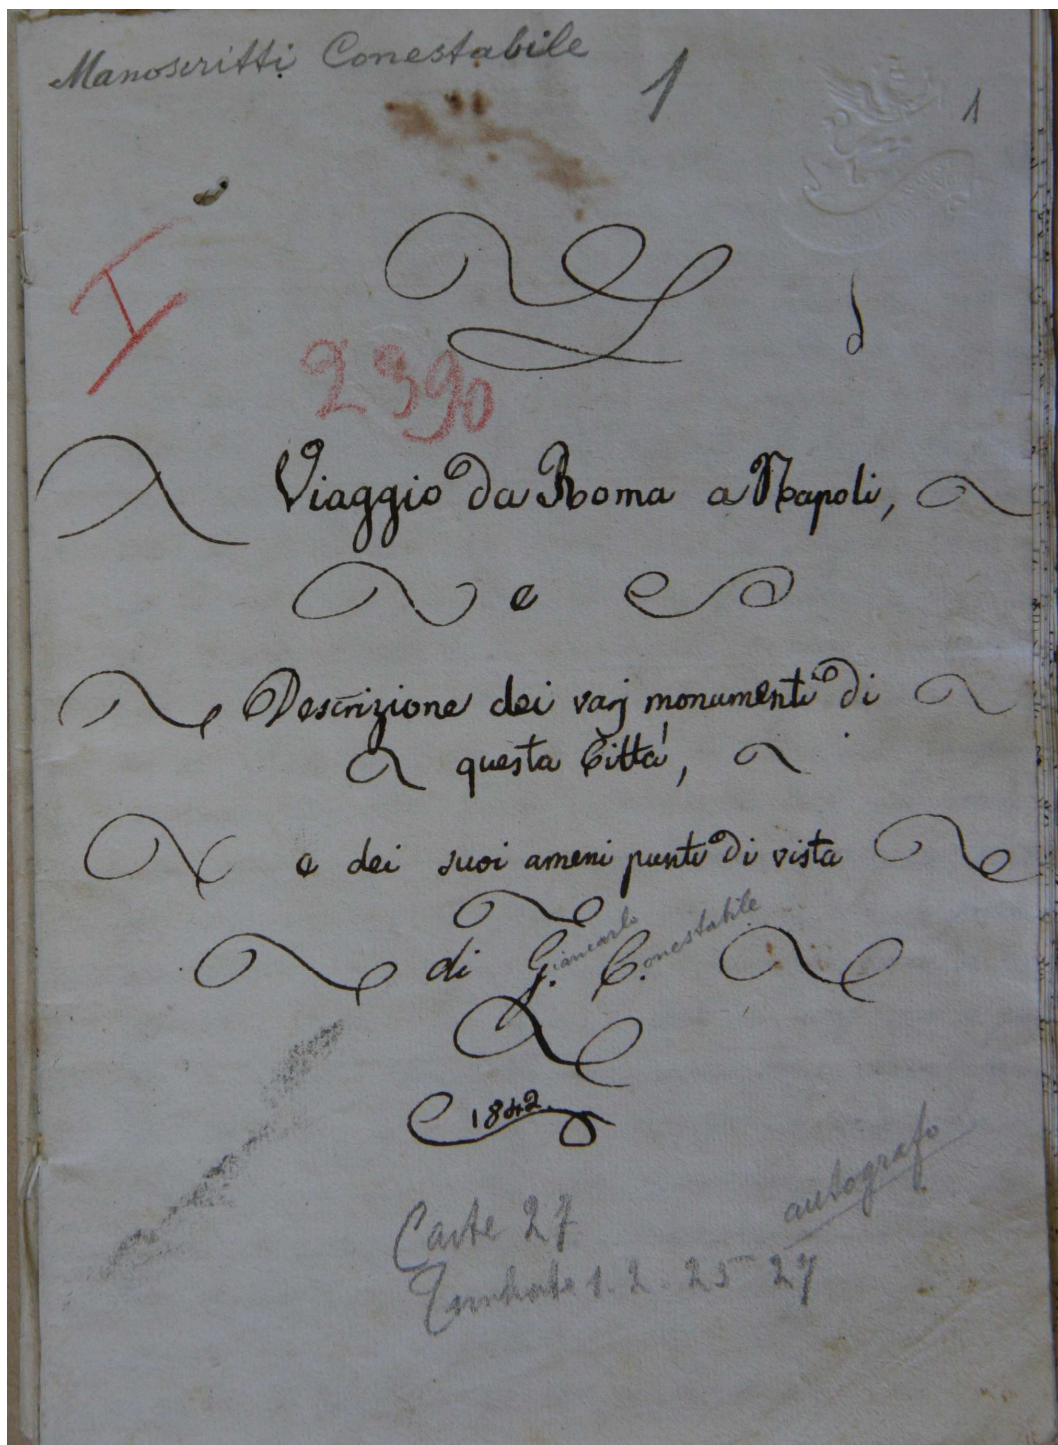 Manoscritti Conestabile
1
1
I
2390
Viaggio da Roma a Napoli,
e
Descrizione dei varj monumenti di
questa Città,
e dei suoi ameni punti di vista
di G. C.
Giancarlo Conestabile
1842.
autografo
Carte 27
Timbrate 1. 2. 25 27